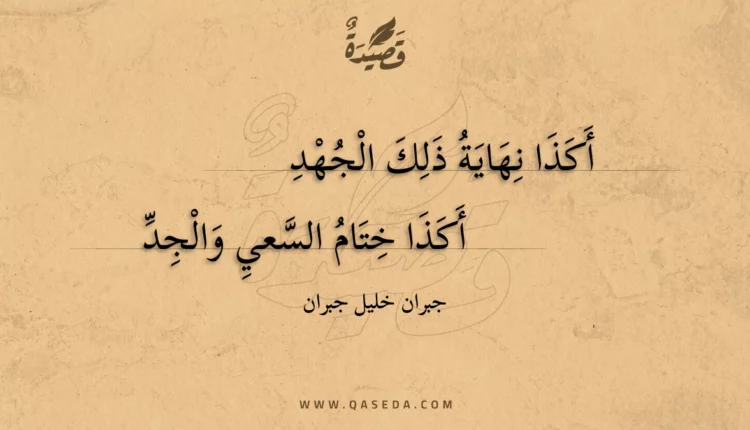 قَصِيدَةٌ
أَكَذَا نِهَايَةُ ذَلِكَ الْجُهْدِ
أَكَذَا خِتَامُ السَّعيِ وَالْجِدِّ
جبران خليل جبران
WWW.QASEDA.COM